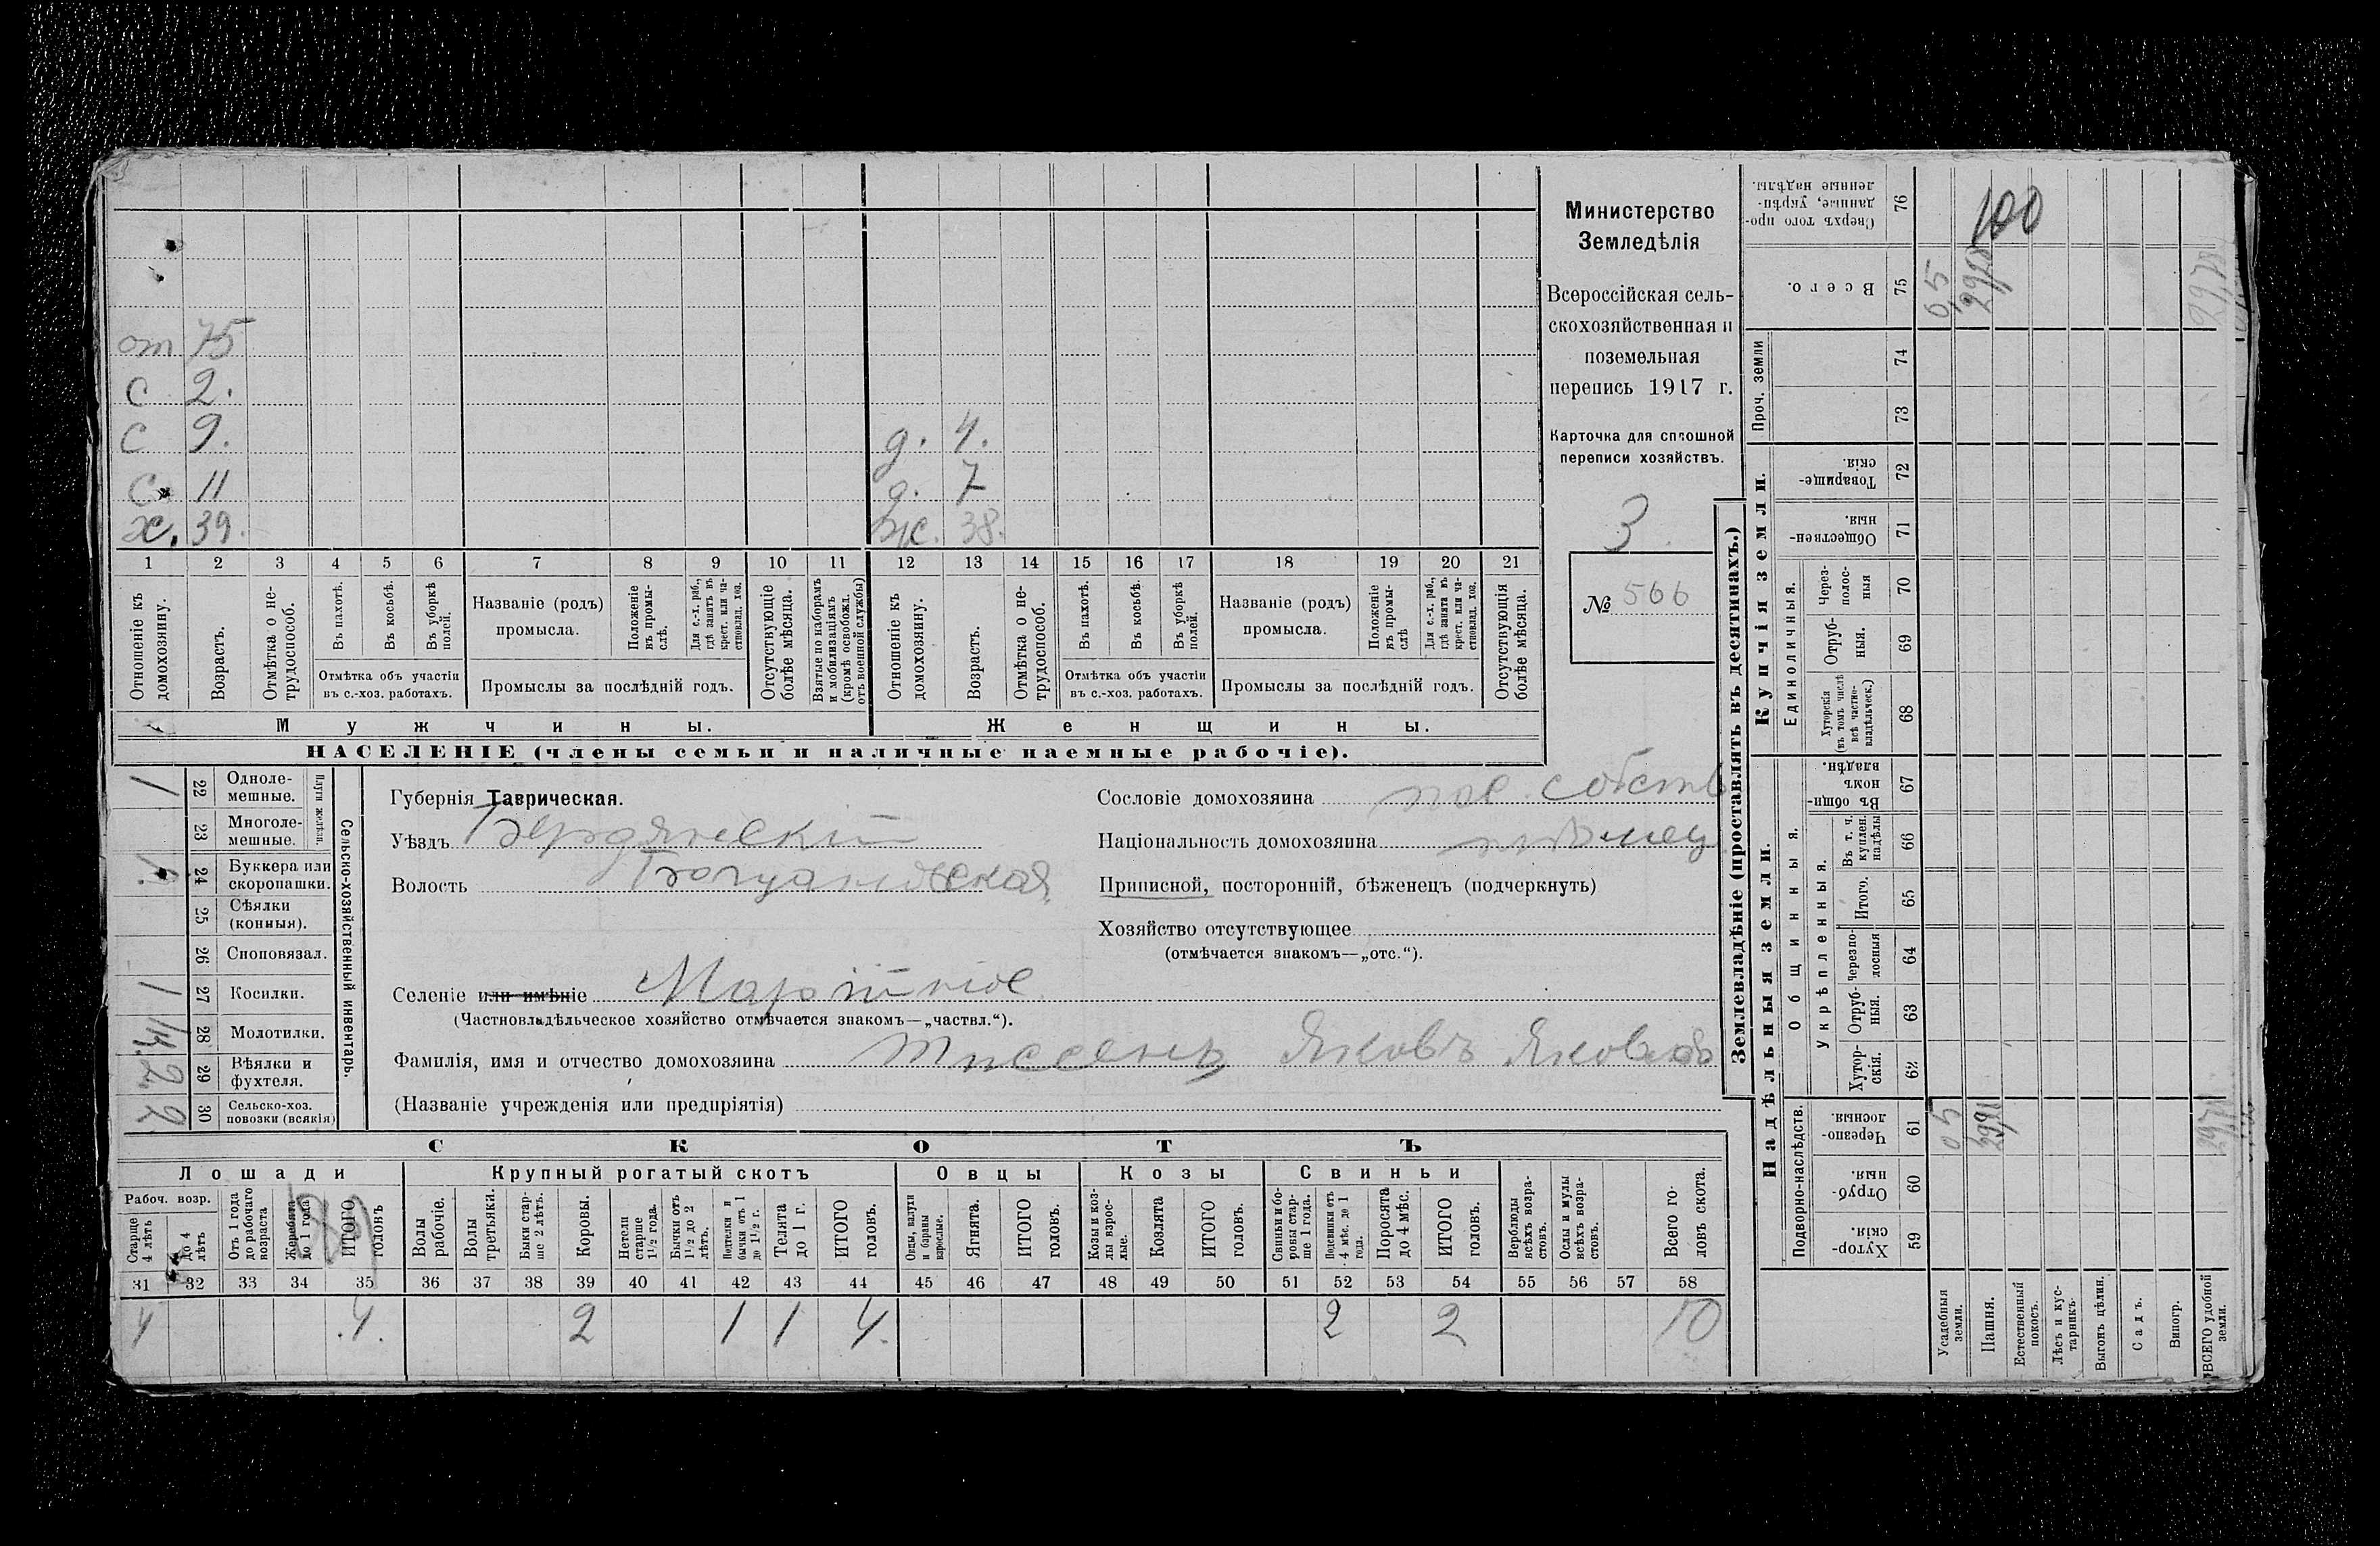 Министерство
Земледѣлія
Всероссійская сель-
скохозяйственная и
поземельная
перепись 1917 г.
Карточка для сплошной
переписи хозяйствъ.
3.
№ 566
от 75
с 2.
с 9. д. 4.
с. 11 д. 7
х. 39. ж. 38.
1 2 3 4 5 6 7 8 9 10 11 12 13 14 15 16 17 18 19 20 21
Отношеніе къ домохозяину.
Возрастъ.
Отмѣтка о не-трудоспособ.
Въ пахотѣ.
Въ косьбѣ.
Въ уборкѣ полей.
Отмѣтка объ участіи въ с.-хоз. работахъ.
Названіе (родъ) промысла.
Положеніе въ промы-слѣ.
Для с.-х. раб., гдѣ занятъ въ крест. или ча-стновлад. хоз.
Промыслы за послѣдній годъ.
Отсутствующіе болѣе мѣсяца.
Взятые по наборамъ и мобилизаціямъ (кромѣ освобожд. отъ военной службы)
Отношеніе къ домохозяину.
Возрастъ.
Отмѣтка о не-трудоспособ.
Въ пахотѣ.
Въ косьбѣ.
Въ уборкѣ полей.
Отмѣтка объ участіи въ с.-хоз. работахъ.
Названіе (родъ) промысла.
Положеніе въ промы-слѣ
Для с.-х. раб., гдѣ занята въ крест. или ча-стновлад. хоз.
Промыслы за послѣдній годъ.
Отсутствующія болѣе мѣсяца.
Мужчины. Женщины.
НАСЕЛЕНІЕ (члены семьи и наличные наемные рабочіе).
Сельско-хозяйственный инвентарь.
Плуги желѣзн.
1 22 Одноле-мешные.
23 Многоле-мешные.
1. 24 Буккера или скоропашки.
25 Сѣялки (конныя).
26 Сноповязал.
1 27 Косилки.
28 Молотилки.
2 29 Вѣялки и фухтеля.
2 30 Сельско-хоз. повозки (всякія)
Губернія Таврическая.
Уѣздъ Бердянскій
Волость Богдановская
Селеніе или имѣніе
(Частновладѣльческое хозяйство отмѣчается знакомъ—„частвл.“).
Фамилія, имя и отчество домохозяина Тиссенъ Яковъ Яковлев
(Названіе учрежденія или предпріятія)
Сословіе домохозяина пос. собств
Національность домохозяина нѣмец
Приписной, посторонній, бѣженецъ (подчеркнуть)
Хозяйство отсутствующее
(отмѣчается знакомъ—„отс.“).
СКОТЪ
Лошади Крупный рогатый скотъ Овцы Козы Свиньи
Рабоч. возр.
Старше 4 лѣтъ
до 4 лѣтъ
Отъ 1 года до рабочаго возраста
Жеребята до 1 года
ИТОГО головъ
Волы рабочіе.
Волы третьяки.
Быки стар-ше 2 лѣтъ.
Коровы.
Нетели старше 1 1/2 года.
Бычки отъ 1 1/2 до 2 лѣтъ.
Подтелки и бычки отъ 1 до 1 1/2 г.
Телята до 1 г.
ИТОГО головъ.
Овцы, валухи и бараны взрослые.
Ягнята.
ИТОГО головъ.
Козы и коз-лы взрос-лые.
Козлята
ИТОГО головъ.
Свиньи и бо-ровы стар-ше 1 года.
Подсвинки отъ 4 мѣс. до 1 года.
Поросята до 4 мѣс.
ИТОГО головъ.
Верблюды всѣхъ возра-стовъ.
Ослы и мулы всѣхъ возра-стовъ.
Всего го-ловъ скота.
31 32 33 34 35 36 37 38 39 40 41 42 43 44 45 46 47 48 49 50 51 52 53 54 55 56 57 58
4 4. 2 1 1 4. 2 2 10
Землевладѣніе (проставлять въ десятинахъ.)
Надѣльныя земли. Купчія земли. Проч. земли
Подворно-наслѣдств.
Общинныя.
Укрѣпленныя.
Единоличныя.
59 Хутор-скія.
60 Отруб-ныя.
61 Черезпо-лосныя
62 Хутор-скія.
63 Отруб-ныя.
64 Черезпо-лосныя
65 Итого.
66 Въ т. ч. куплен. надѣлы
67 Въ общин-номъ владѣн.
68 Хуторскія (въ томъ числѣ всѣ частно-владѣльческ.)
69 Отруб-ныя.
70 Через-полос-ныя
71 Обществен-ныя.
72 Товарище-скія.
73
74
75 Всего.
76 Сверхъ того про-данные, укрѣп-ленные надѣлы.
Усадебныя земли.
Пашня.
Естественный покосъ.
Лѣсъ и кус-тарникъ.
Выгонъ цѣлин.
Садъ.
Виногр.
ВСЕГО удобной земли.
05
0,55
100